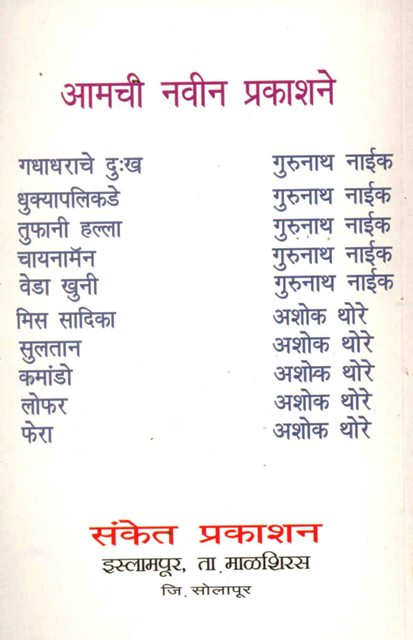 आमची नवीन प्रकाशने
गधाधराचे दुःख गुरुनाथ नाईक
धुक्यापलिकडे गुरुनाथ नाईक
तुफानी हल्ला गुरुनाथ नाईक
चायनामॅन गुरुनाथ नाईक
वेडा खुनी गुरुनाथ नाईक
मिस सादिका अशोक थोरे
सुलतान अशोक थोरे
कमांडो अशोक थोरे
लोफर अशोक थोरे
फेरा अशोक थोरे
संकेत प्रकाशन
इस्लामपूर, ता.माळशिरस
जि.सोलापूर